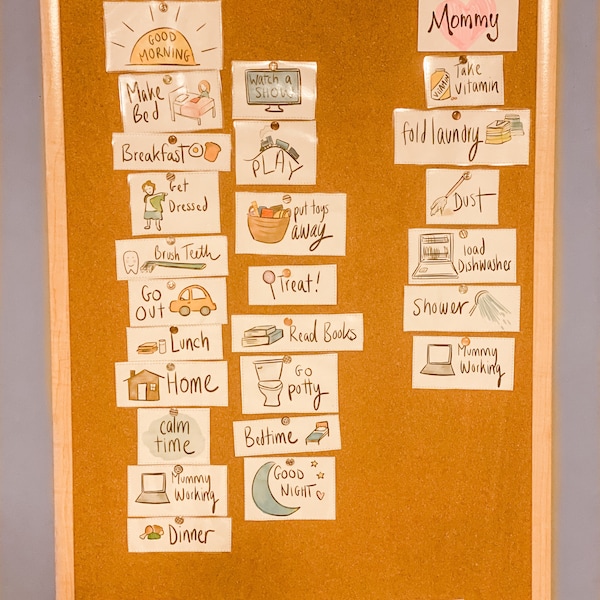 GOOD
MORNING
Make
Bed
Breakfast
Get
Dressed
Brush Teeth
GO
OUT
Lunch
Home
calm
time
Mummy
Working
Dinner
Watch a
SHOW
PLAY
put toys
away
Treat!
Read Books
GO
Potty
Bedtime
GOOD
NIGHT
Mommy
Take
Vitamin
fold laundry
DUST
load
Dishwasher
Shower
Mummy
Working